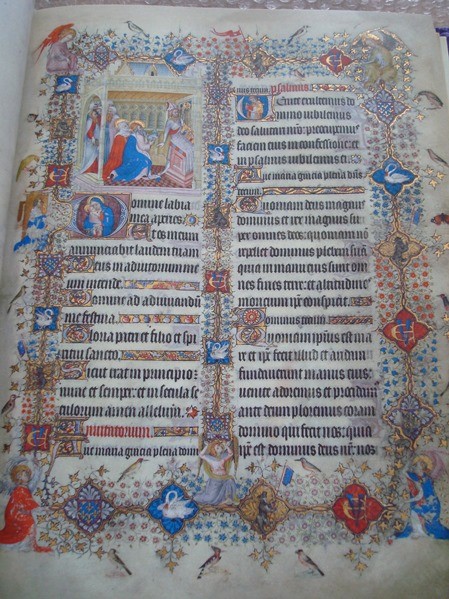 Domine labia
mea aperies
Et os meum
annunciabit laudem tuam
Deus in adiutorium me
um intende
Domine ad adiuvandum
me festina
Gloria patri et filio et spi
ritui sancto
Sicut erat in principio
et nunc et semper et in secula se
culorum amen alleluia
Invitatorium
Ave maria gracia plena dom
psalmus
Venite exultemus do
mino iubilemus
deo salutari nro preocupemus
faciem eius in confessione et
in psalmis iubilemus ei
Ave maria gracia plena dns
tecum
Quoniam deus magnus
dominus et rex magnus su
per omnes deos quoniam non
repellet dominus plebem sua
quia in manu eius sunt om
nes fines terre et altitudines
moncium ipse conspicit
Dominus tecum
Quoniam ipsius est ma
re et ipse fecit illud et aridam
fundaverunt manus eius
venite adoremus et procidam
ante deum ploremus coram
domino qui fecit nos quia
ipse est dominus deus nr nos